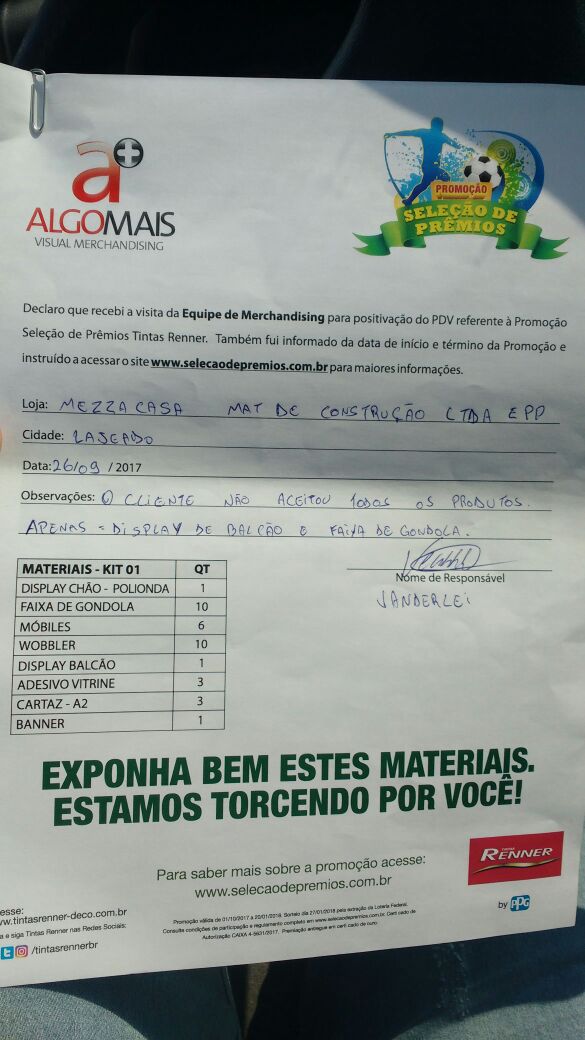 a+
ALGOMAIS
VISUAL MERCHANDISING
PROMOÇÃO
SELEÇÃO DE
PRÊMIOS
Declaro que recebi a visita da Equipe de Merchandising para positivação do PDV referente à Promoção
Seleção de Prêmios Tintas Renner. Também fui informado da data de início e término da Promoção e
instruído a acessar o site www.selecaodepremios.com.br para maiores informações.
Loja: MEZZA CASA MAT DE CONSTRUÇÃO LTDA EPP
Cidade: LAJEADO
Data: 26/09 / 2017
Observações: O CLIENTE NÃO ACEITOU TODOS OS PRODUTOS.
APENAS = DISPLAY DE BALCÃO E FAIXA DE GONDOLA.
Nome de Responsável
VANDERLEI
MATERIAIS - KIT 01 QT
DISPLAY CHÃO - POLIONDA 1
FAIXA DE GONDOLA 10
MÓBILES 6
WOBBLER 10
DISPLAY BALCÃO 1
ADESIVO VITRINE 3
CARTAZ - A2 3
BANNER 1
EXPONHA BEM ESTES MATERIAIS.
ESTAMOS TORCENDO POR VOCÊ!
Para saber mais sobre a promoção acesse:
www.selecaodepremios.com.br
TINTAS
RENNER
by PPG
esse:
ww.tintasrenner-deco.com.br
a e siga Tintas Renner nas Redes Sociais:
/tintasrennerbr
Promoção válida de 01/10/2017 a 20/01/2018. Sorteio dia 27/01/2018 pela extração da Loteria Federal.
Consulte condições de participação e regulamento completo em www.selecaodepremios.com.br. Certi cado de
Autorização CAIXA 4-5631/2017. Premiação entregue em certi cado de ouro.